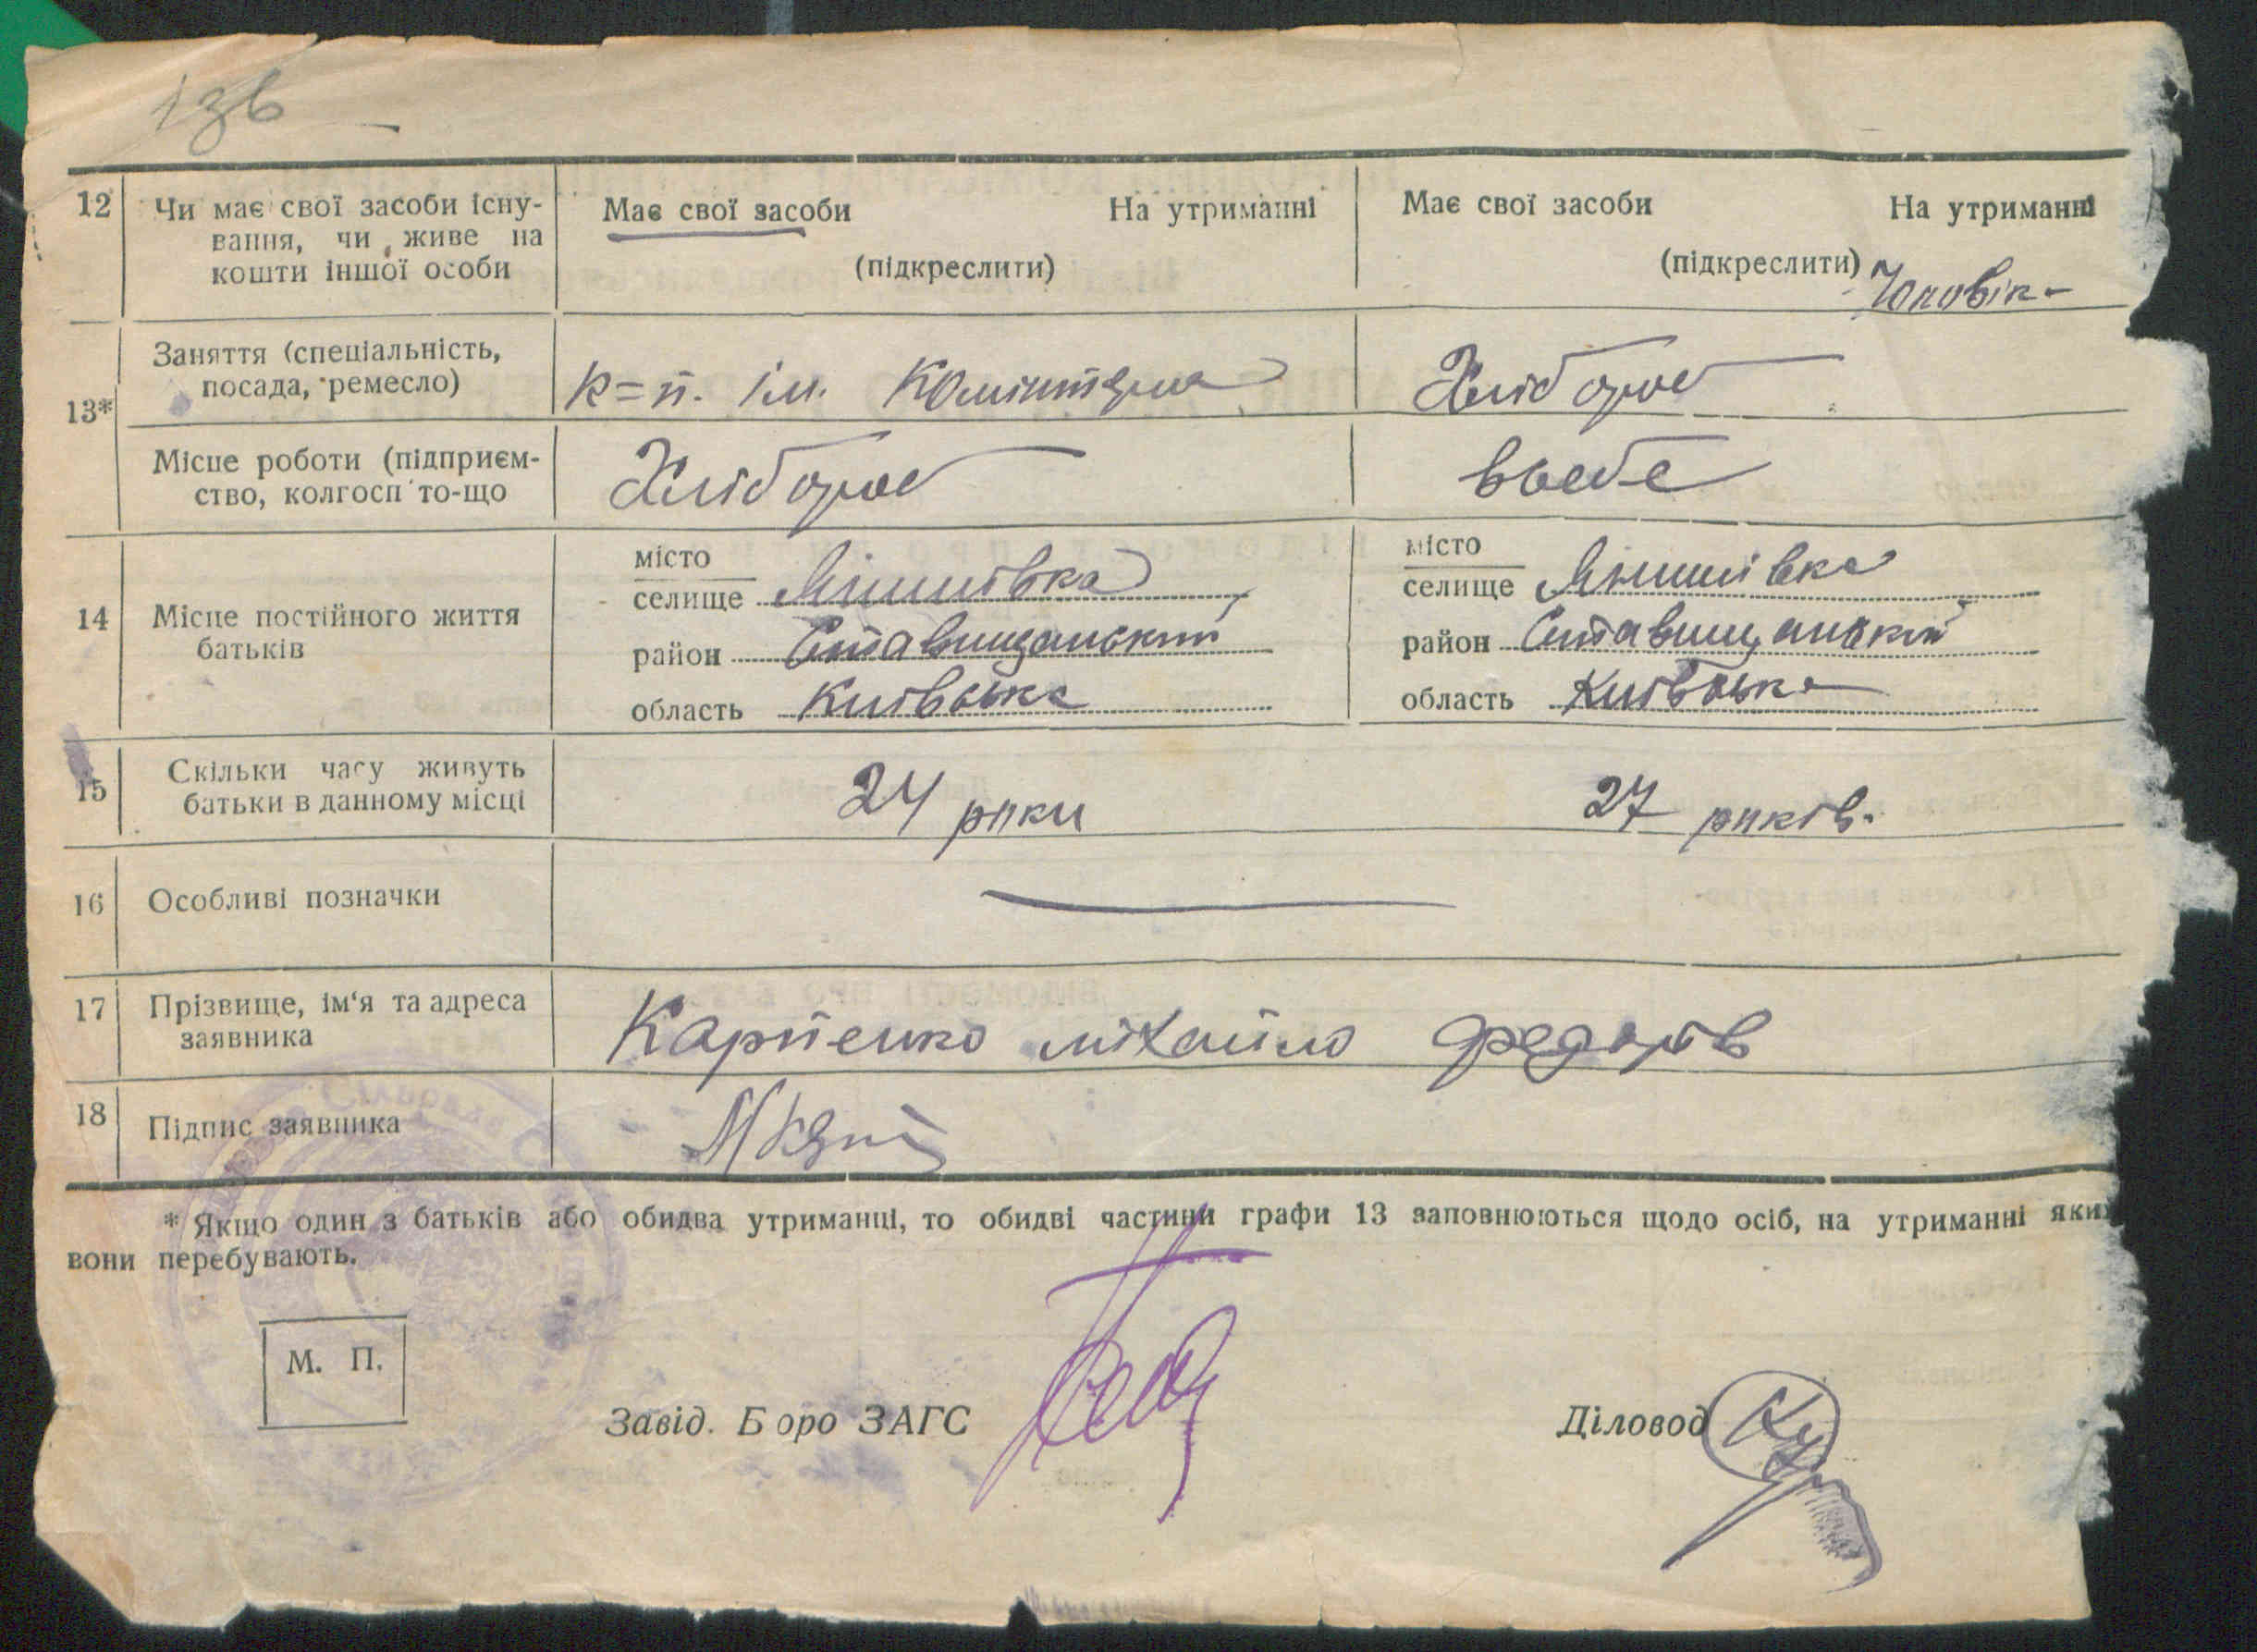 136
12 Чи має свої засоби існу-
вання, чи живе на
кошти іншої особи
Має свої засоби На утриманні
(підкреслити)
Має свої засоби На утриманні
(підкреслити) Чоловік-
13*
Заняття (спеціальність,
посада, ремесло)
к=п. ім. Комінтерна
Хлібороб
Місце роботи (підприєм-
ство, колгосп то-що
Хлібороб
14 Місце постійного життя
батьків
місто
селище
район Ставищанський
область Київська
місто
селище
район Ставищанський
область Київська
15 Скільки часу живуть
батьки в данному місці
24 роки
27 років.
16 Особливі позначки
17 Прізвище, ім‘я та адреса
заявника
Карпенко міхайло Федорів
18 Підпис заявника
* Якщо один з батьків або обидва утриманці, то обидві частини графи 13 заповнюються щодо осіб, на утриманні яких
вони перебувають.
М. П.
Завід. Б оро ЗАГС
Діловод